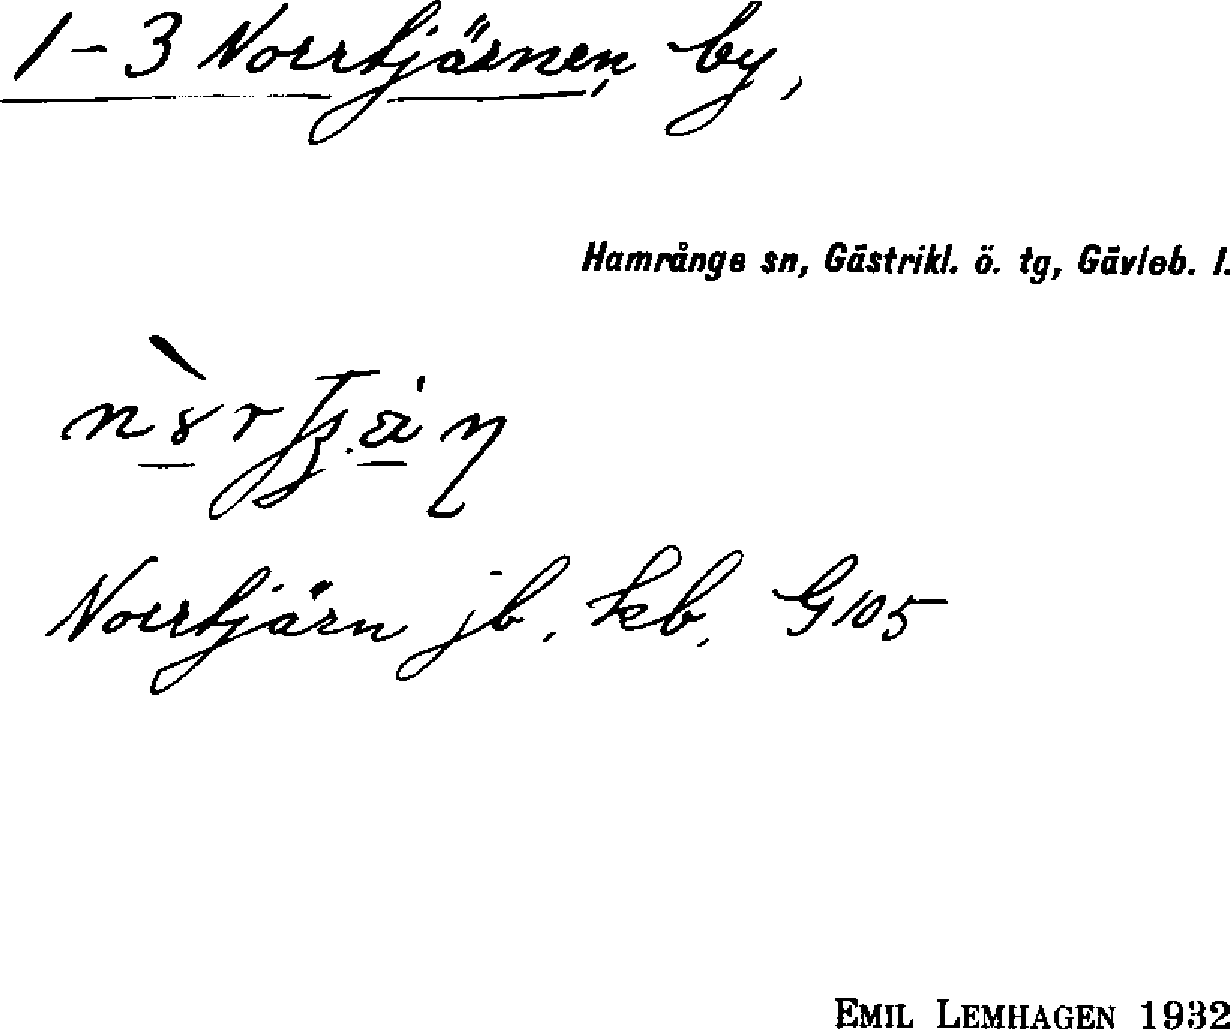 1-3 Norrtjärnen, by,
Hamrånge sn, Gästrikl. ö. tg, Gävleb. l.
Norrtjärn jb. kb. G105
EMIL LEMHAGEN 1932